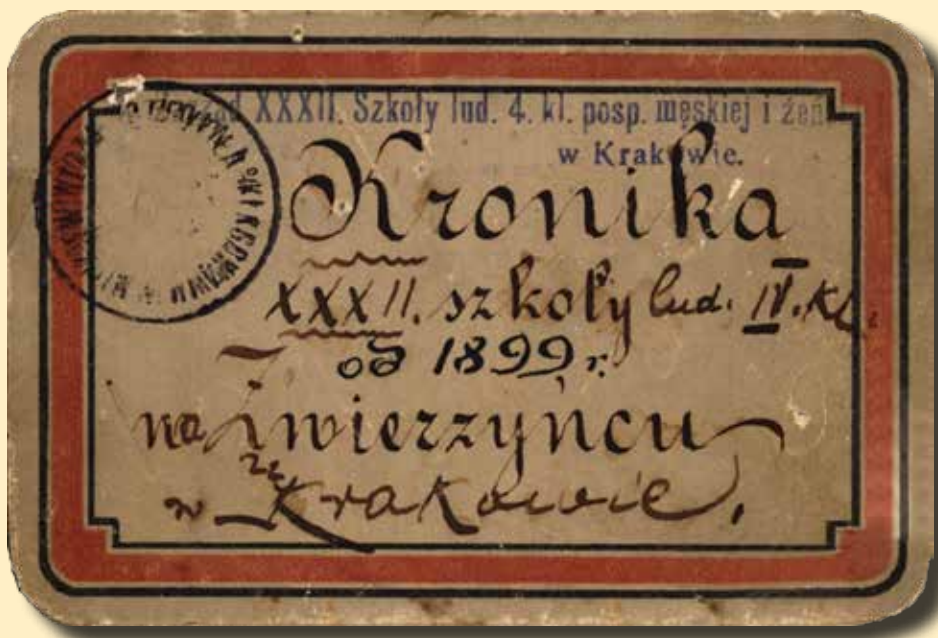 XXXII. Szkoły lud. 4. kl. posp. męskiej i żeń.
w Krakowie.
Kronika
XXXII. szkoły lud. IV. Kl.
od 1899 r.
na Zwierzyńcu
w Krakowie.